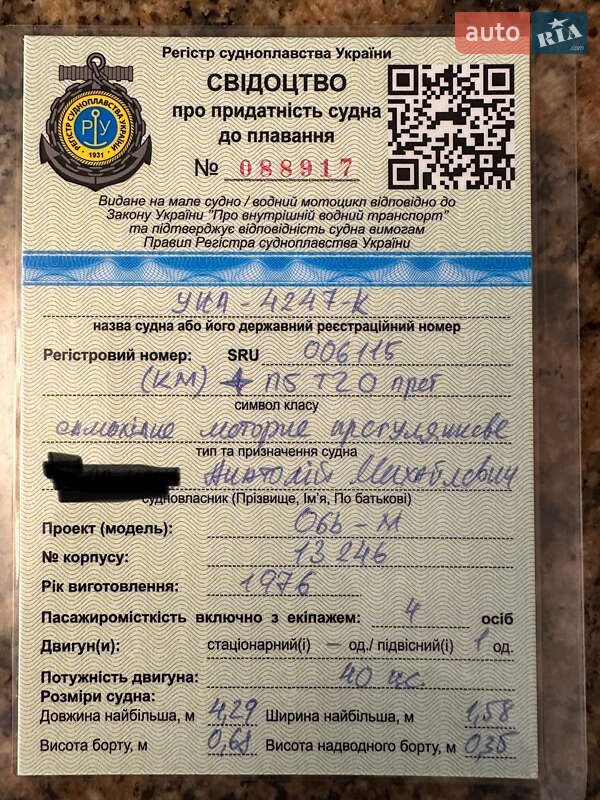 auto RIA .com
Регістр судноплавства України
СВІДОЦТВО
про придатність судна
до плавання
№ 088917
РЕГІСТР СУДНОПЛАВСТВА УКРАЇНИ
РУ
1931
Видане на мале судно / водний мотоцикл відповідно до
Закону України "Про внутрішній водний транспорт"
та підтверджує відповідність судна вимогам
Правил Регістра судноплавства України
УКА-4247-К
назва судна або його державний реєстраційний номер
Регістровий номер: SRU 006115
(КМ) П5 Т20 прот
символ класу
самохідне моторне прогулянкове
тип та призначення судна
Анатолій Михайлович
судновласник (Прізвище, Ім'я, По батькові)
Проект (модель): Обь-М
№ корпусу: 13246
Рік виготовлення: 1976
Пасажиромісткість включно з екіпажем: 4 осіб
Двигун(и): стаціонарний(і) – од./ підвісний(і) 1 од.
Потужність двигуна: 40 к.с.
Розміри судна:
Довжина найбільша, м 4,29 Ширина найбільша, м 1,58
Висота борту, м 0,68 Висота надводного борту, м 0,35